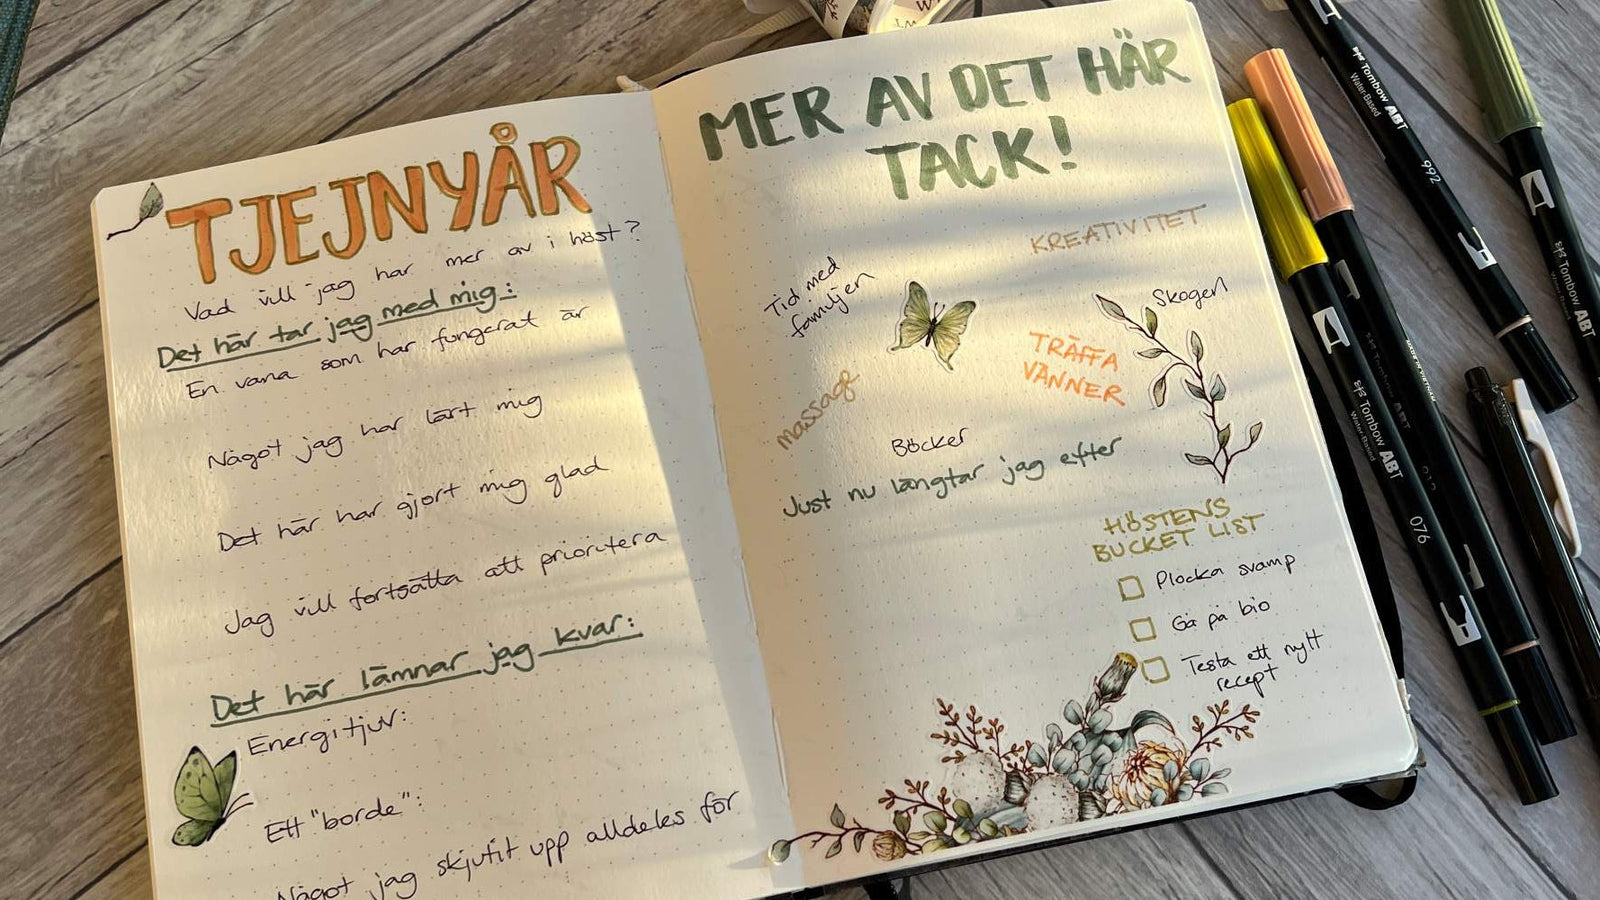 TJEJNYÅR
Vad vill jag har mer av i höst?
Det här tar jag med mig:
En vana som har fungerat är
Något jag har lärt mig
Det här har gjort mig glad
Jag vill fortsätta att prioritera
Det här lämnar jag kvar:
Energitjuv:
Ett "borde":
Något jag skjutit upp alldeles för
MER AV DET HÄR
TACK!
KREATIVITET
Tid med
familjen
Skogen
TRÄFFA
VÄNNER
massage
Böcker
Just nu längtar jag efter
HÖSTENS
BUCKET LIST
Plocka svamp
Gå på bio
Testa ett nytt
recept
Tombow ABT
Water-Based
992
Tombow ABT
Tombow ABT
Water-Based
076
MADE IN VIETNAM